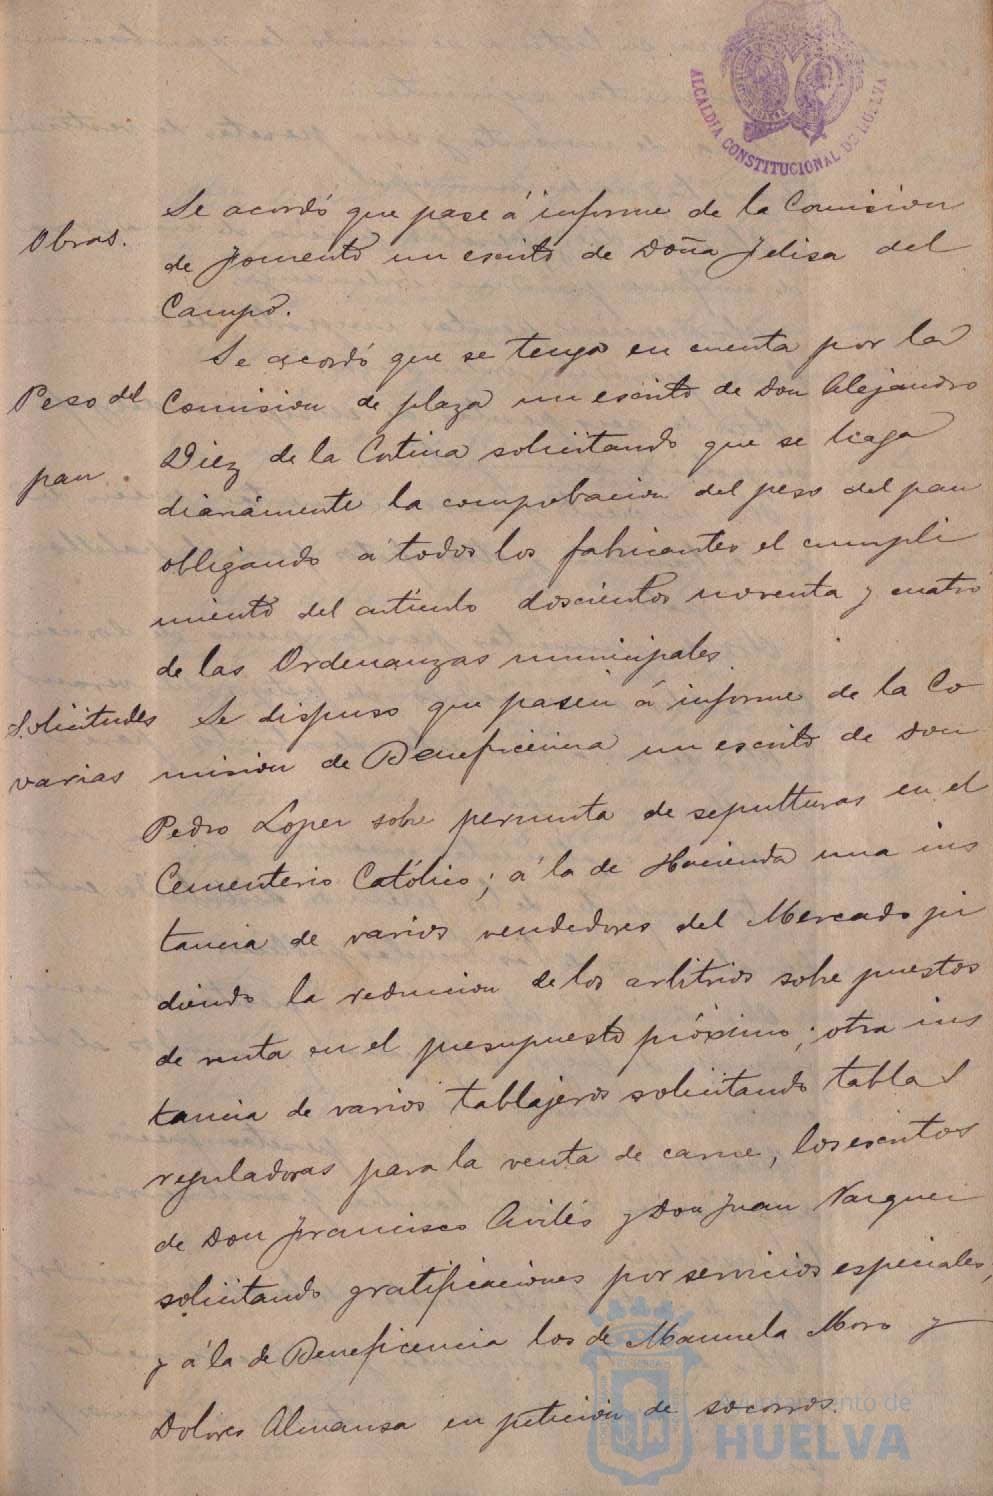 ALCALDIA CONSTITUCIONAL DE HUELVA
Obras.
Se acordó que pase á informe de la Comision
de Fomento un escrito de Doña Felisa del
Campo.
Peso del
pan.
Se acordó que se tenga en cuenta por la
Comision de plaza un escrito de Don Alejandro
Diez de la Cortina solicitando que se haga
diariamente la comprobacion del peso del pan
obligando á todos los fabricantes el cumpli
miento del artículo doscientos noventa y cuatro
de las Ordenanzas municipales.
Solicitudes
varias
Se dispuso que pasen á informe de la Co
mision de Beneficencia un escrito de Don
Pedro Lopez sobre permuta de sepulturas en el
Cementerio Católico; á la de Hacienda una ins
tancia de varios vendedores del Mercado pi
diendo la reduccion de los arbitrios sobre puestos
de venta en el presupuesto próximo; otra ins
tancia de varios tablajeros solicitando tablas
reguladoras para la venta de carne, los escritos
de Don Francisco Avilés y Don Juan Vazquez
solicitando gratificaciones por servicios especiales,
y á la de Beneficencia los de Manuela Moro y
Dolores Almansa en peticion de socorros.
Ayuntamiento de
HUELVA